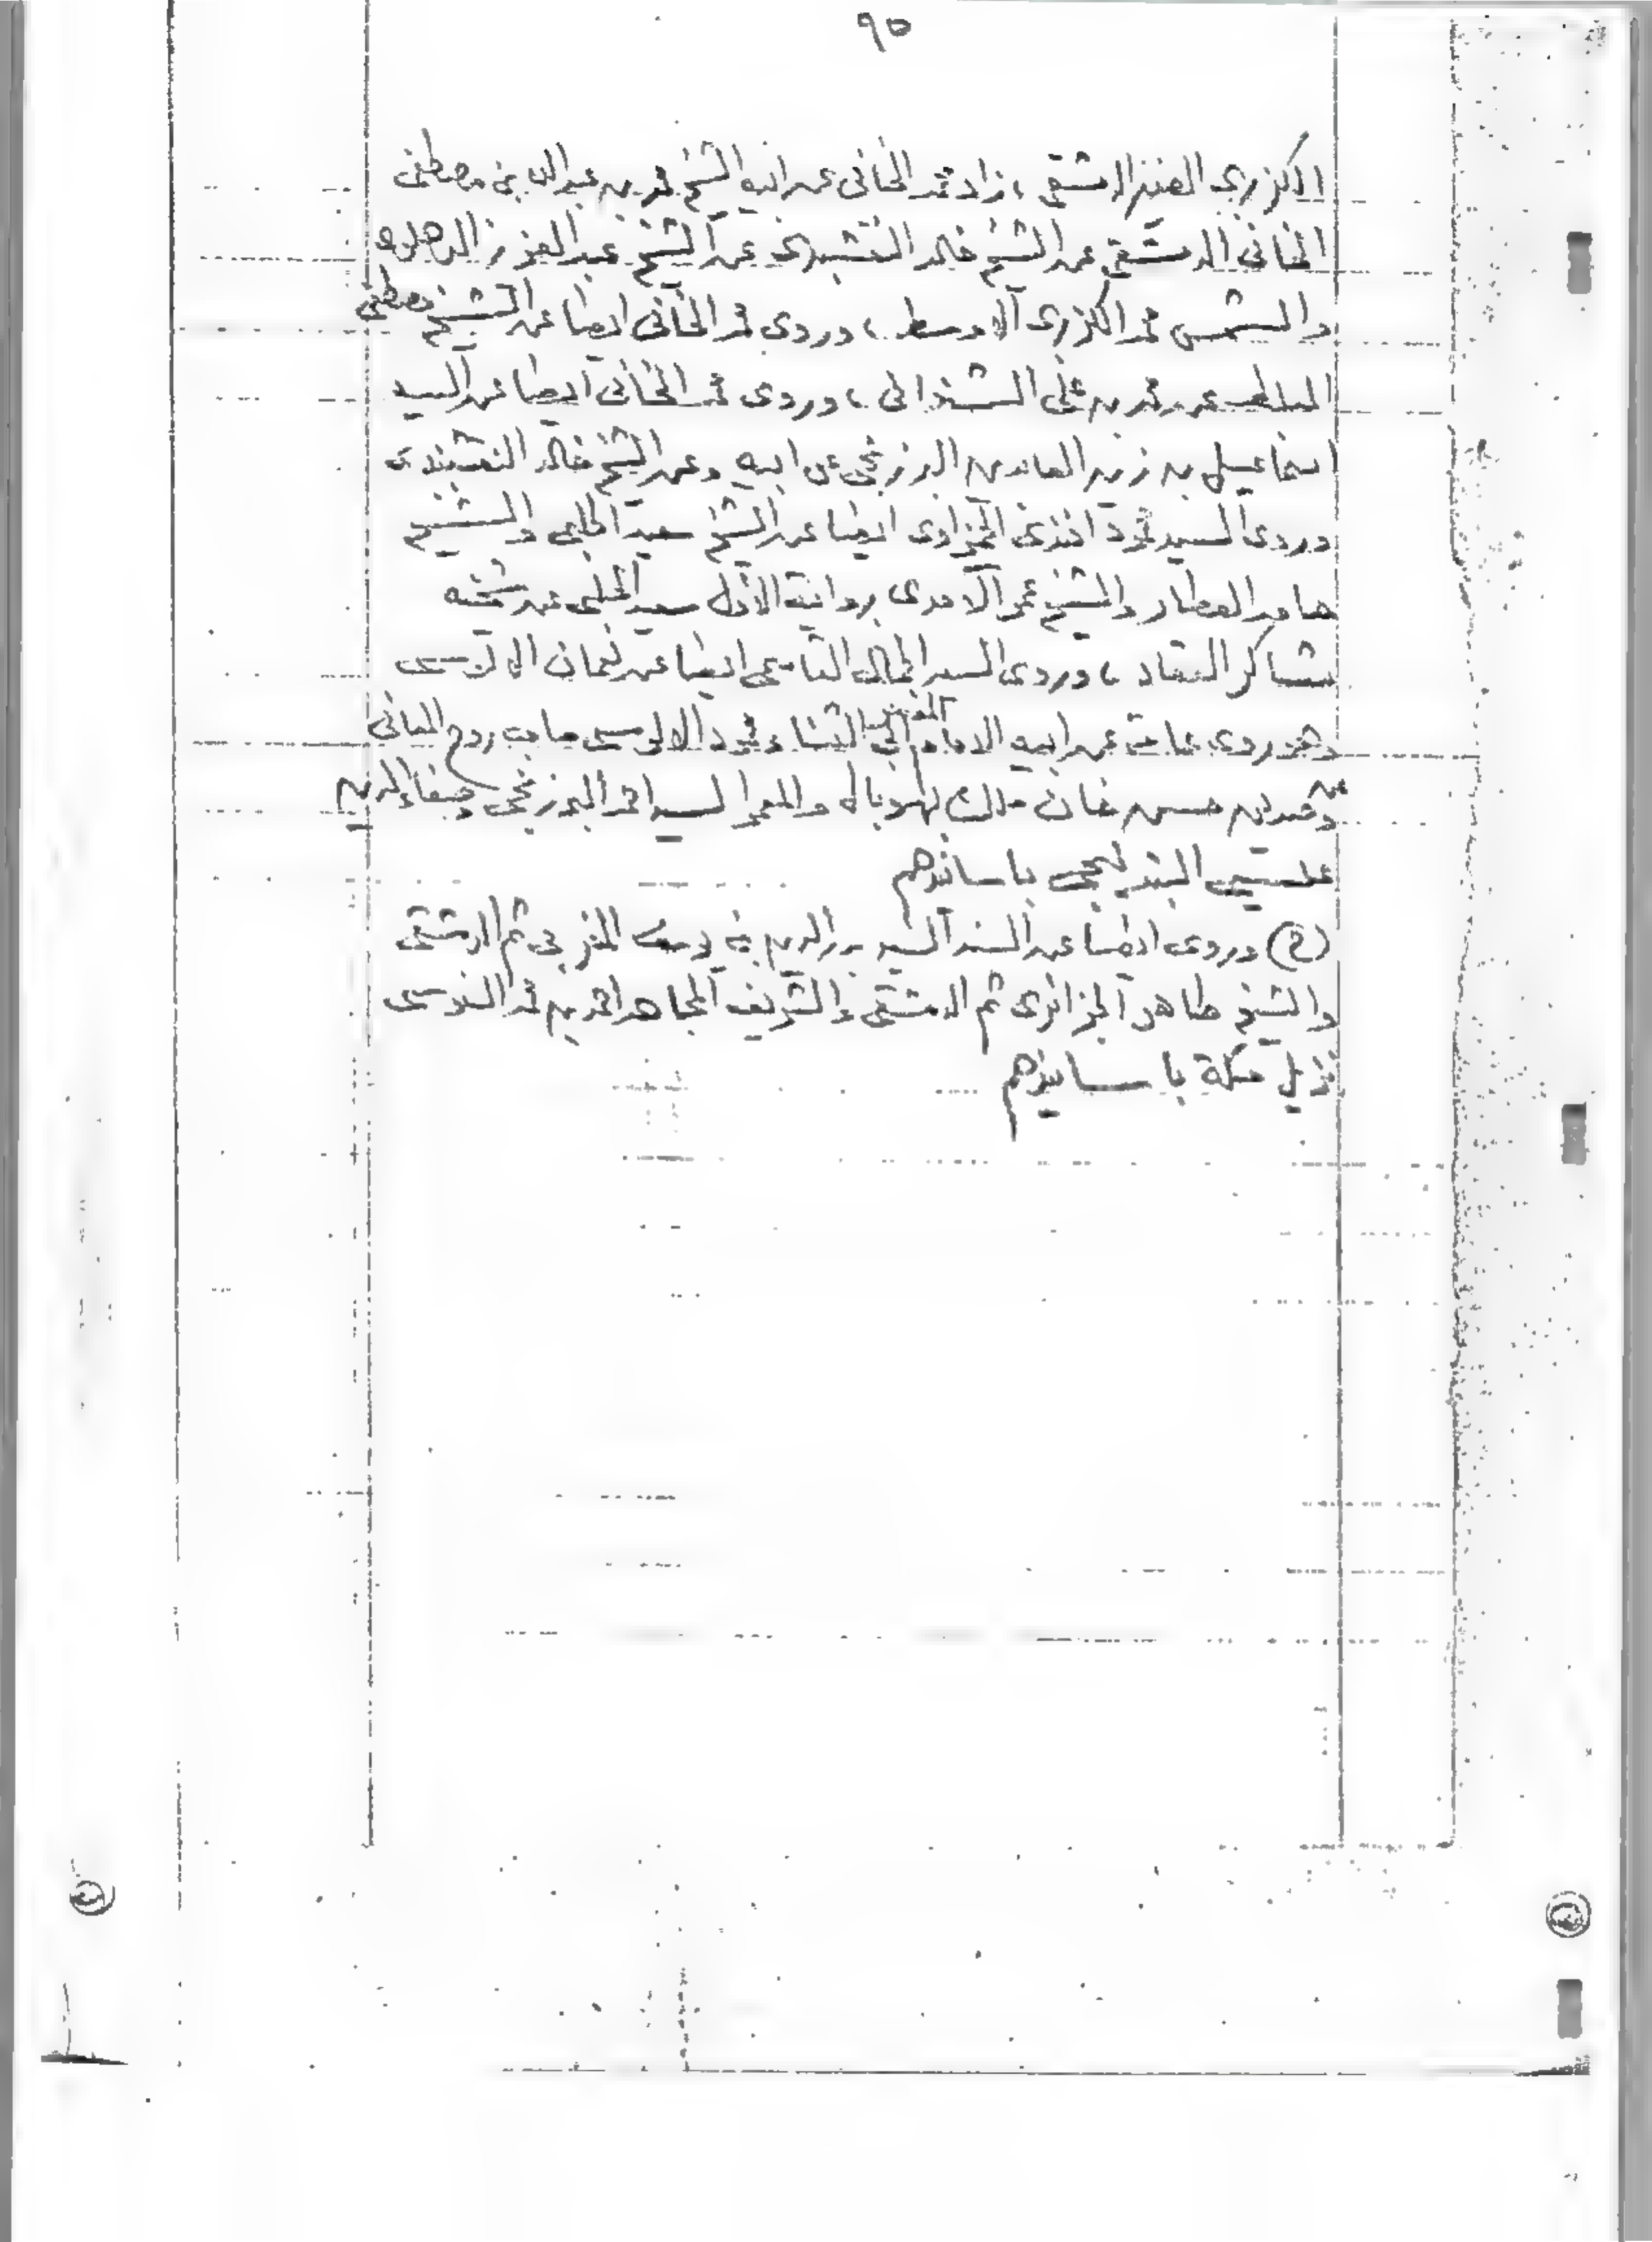 ٩٥
الكزبرى الصغير الدمشقى ، زاد محمد الخانى عن ابيه الشيخ محمد بن عبد الله بن مصطفى
الخانى الدمشقى عن الشيخ خالد النقشبندى عن الشيخ عبد العزيز الدهلوى
والشمس محمد الكزبرى الاوسط ، وروى محمد الخانى ايضا عن الشيخ مصطفى
المبلط عن محمد بن على الشنوانى ، وروى محمد الخانى ايضا عن السيد
اسماعيل بن زين العابدين البرزنجى عن ابيه وعن الشيخ خالد النقشبندى
وروى السيد محمود افندى الحمزاوى ايضا عن الشيخ سعيد الحلبى والشيخ
حامد العطار والشيخ عمر الآمدى برواية الاول سعيد الحلبى عن شيخه
شاكر العقاد ، وروى السيد الجمال القاسمى ايضا عن نعمان الالوسى
وهو روى عاليا عن ابيه الامام المفسر ابى الثناء محمود الالوسى صاحب روح المعانى
وعن صديق حسن خان ملك بهوبال والمعمر السيد احمد البرزنجى وصفاء الدين
عيسى البندنيجى باسانيدهم
(ح) وروى ايضا عن السند السيد بدر الدين بن يوسف المغربى ثم الدمشقى
والشيخ طاهر الجزائرى ثم الدمشقى والشريف المجاهد احمد بن محمد السنوسى
نزيل مكة باسانيدهم